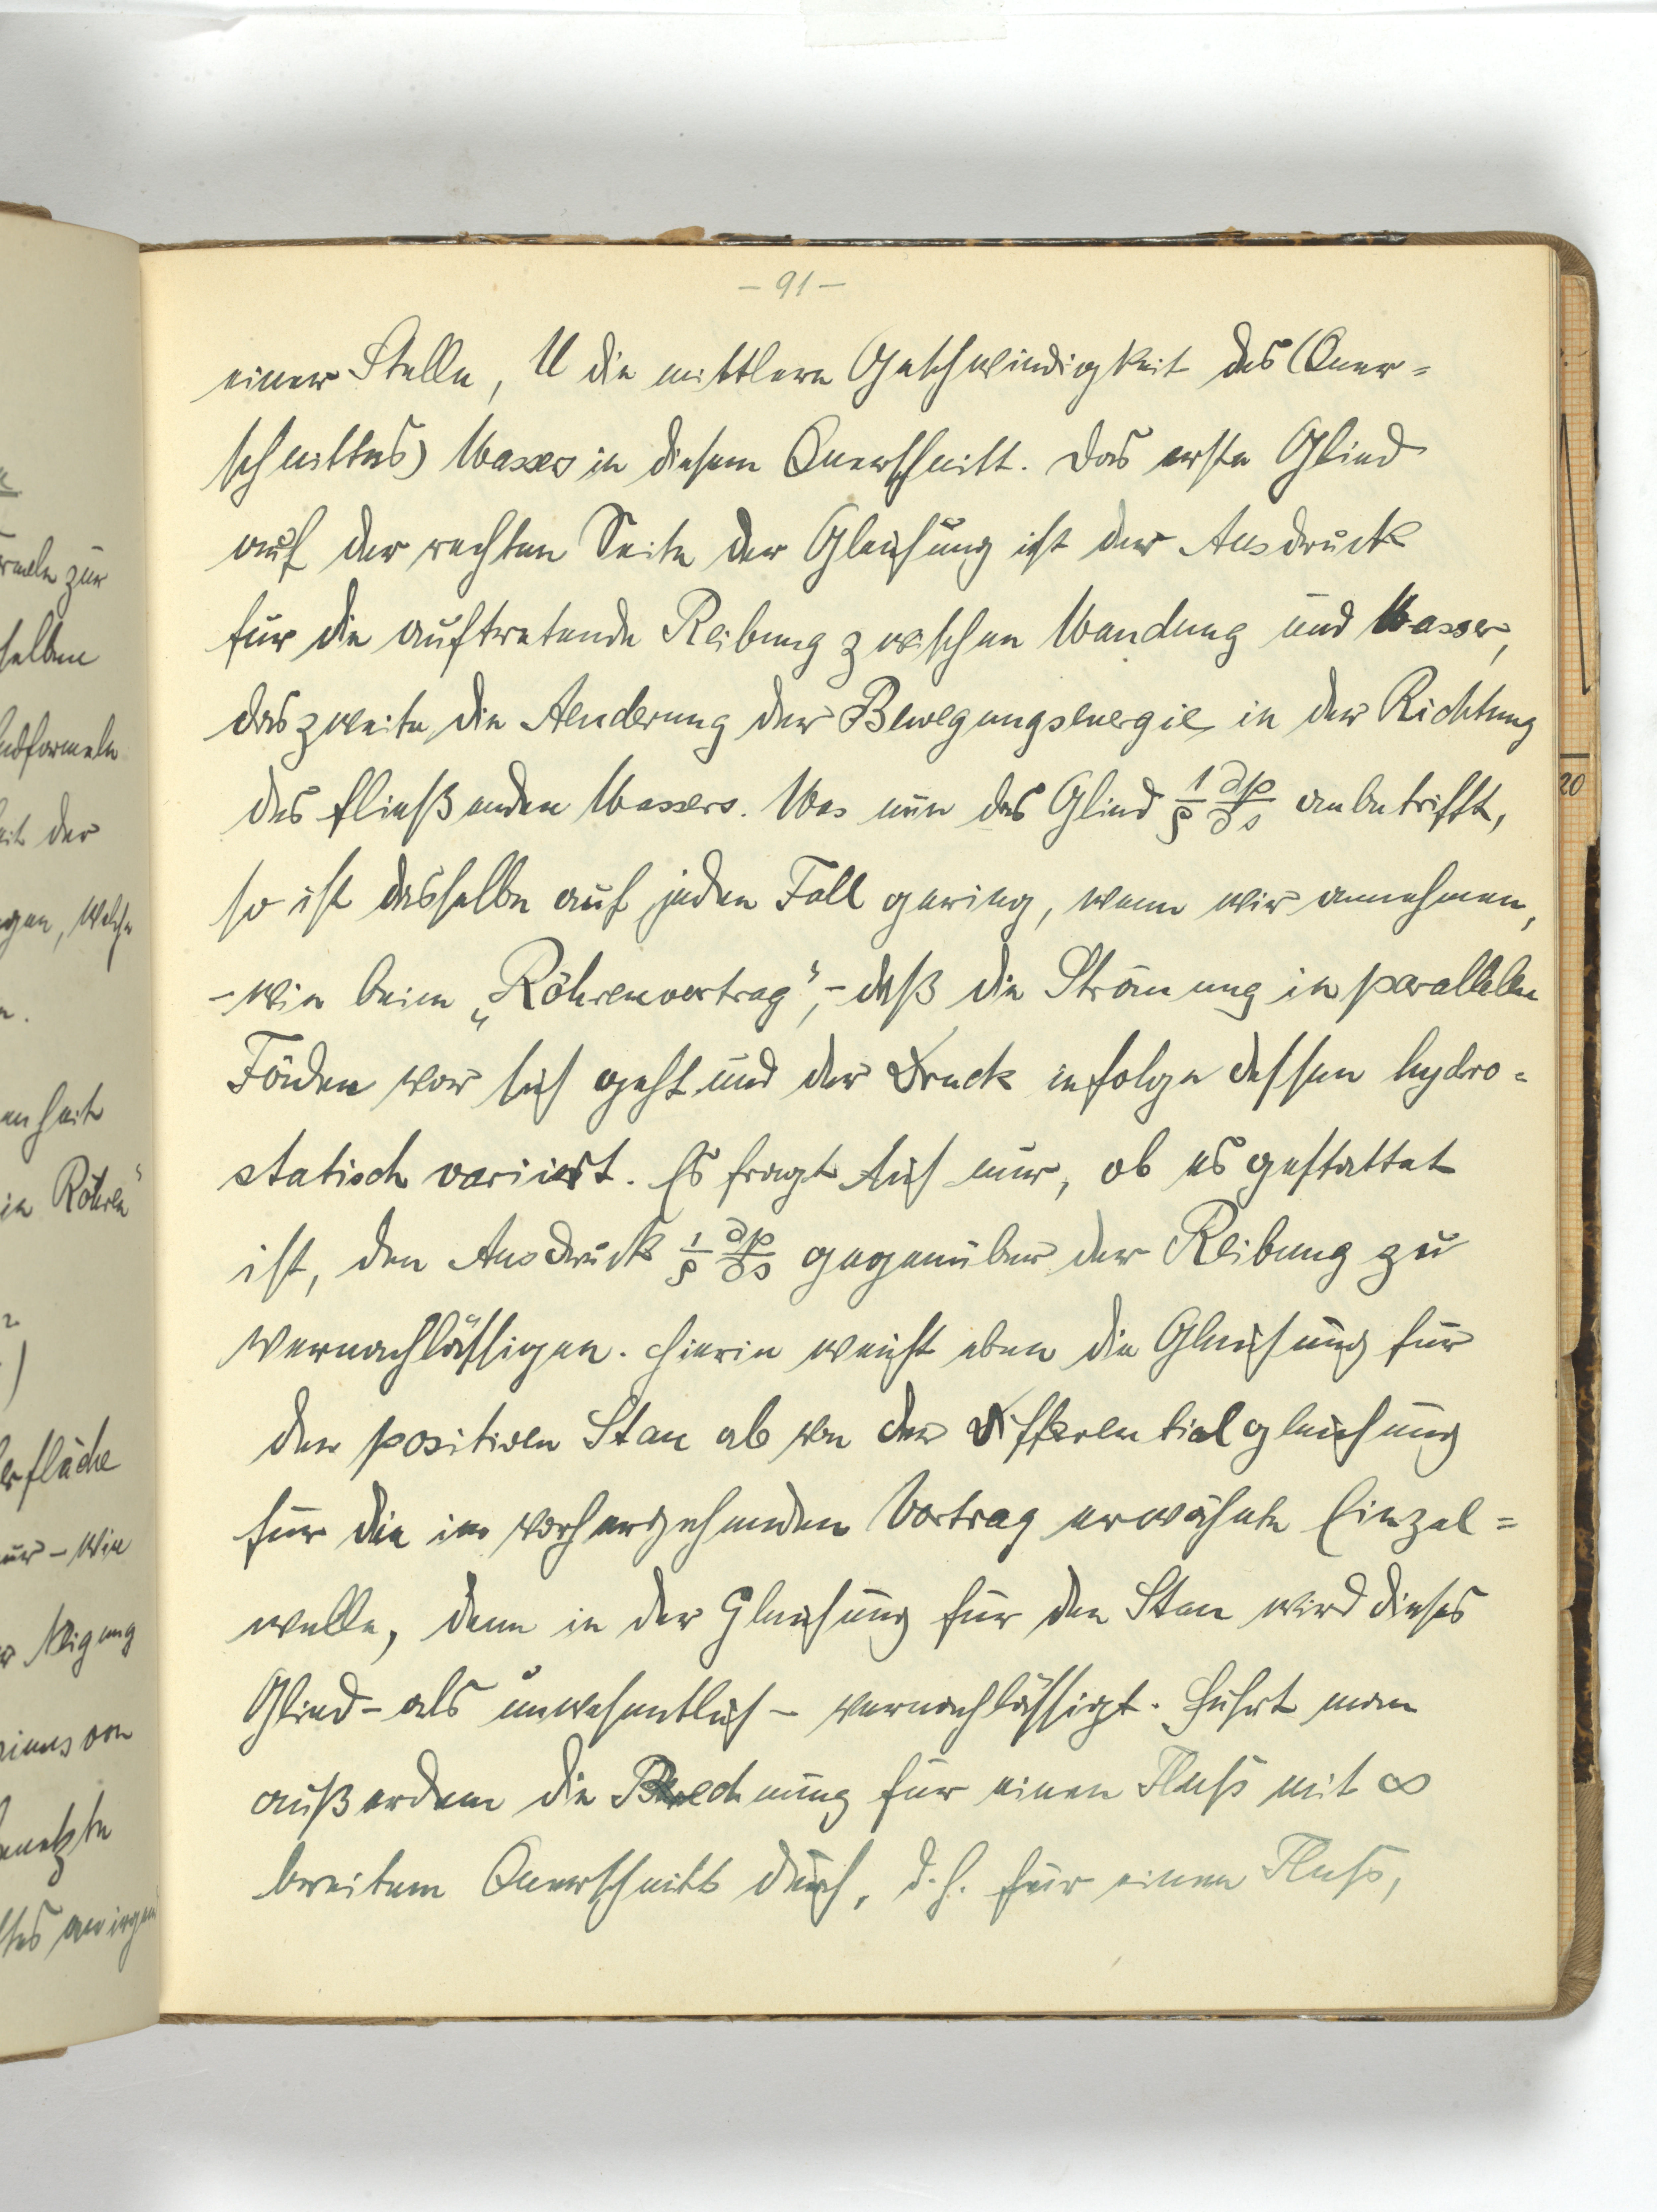 - 91 -
einer Stelle, U die mittlere Geschwindigkeit des (Quer=
schnittes) Wassers in diesem Querschnitt. Das erste Glied
auf der rechten Seite der Gleichung ist der Ausdruck
für die auftretende Reibung zwischen Wandung und Wasser,
das zweite die Aenderung der Bewegungsenergie in der Richtung
des fließenden Wassers. Was nun das Glied 1/ρ ∂p/∂s anbetrifft,
so ist dasselbe auf jeden Fall gering, wenn wir annehmen,
- wie beim „Röhrenvortrag“, - daß die Strömung in parallelen
Fäden vor sich geht und der Druck infolge dessen hydro=
statisch variiert. Es fragt sich nur, ob es gestattet
ist, den Ausdruck 1/ρ ∂p/∂s gegenüber der Reibung zu
vernachlässigen. Hierin weicht eben die Gleichung für
den positiven Stau ab von der Differentialgleichung
für die im vorhergehenden Vortrag erwähnte Einzel=
welle, denn in der Gleichung für den Stau wird dieses
Glied - als unwesentlich - vernachlässigt. Führt man
außerdem die Rechnung für einen Fluß mit ∞
breitem Querschnitt durch, d.h. für einen Fluß,
20
rmeln zur
selben
ndformeln
eit der
gen, welche
enheit
in Röhren“
erfläche
ur - wie
Neigung
von
benetzte